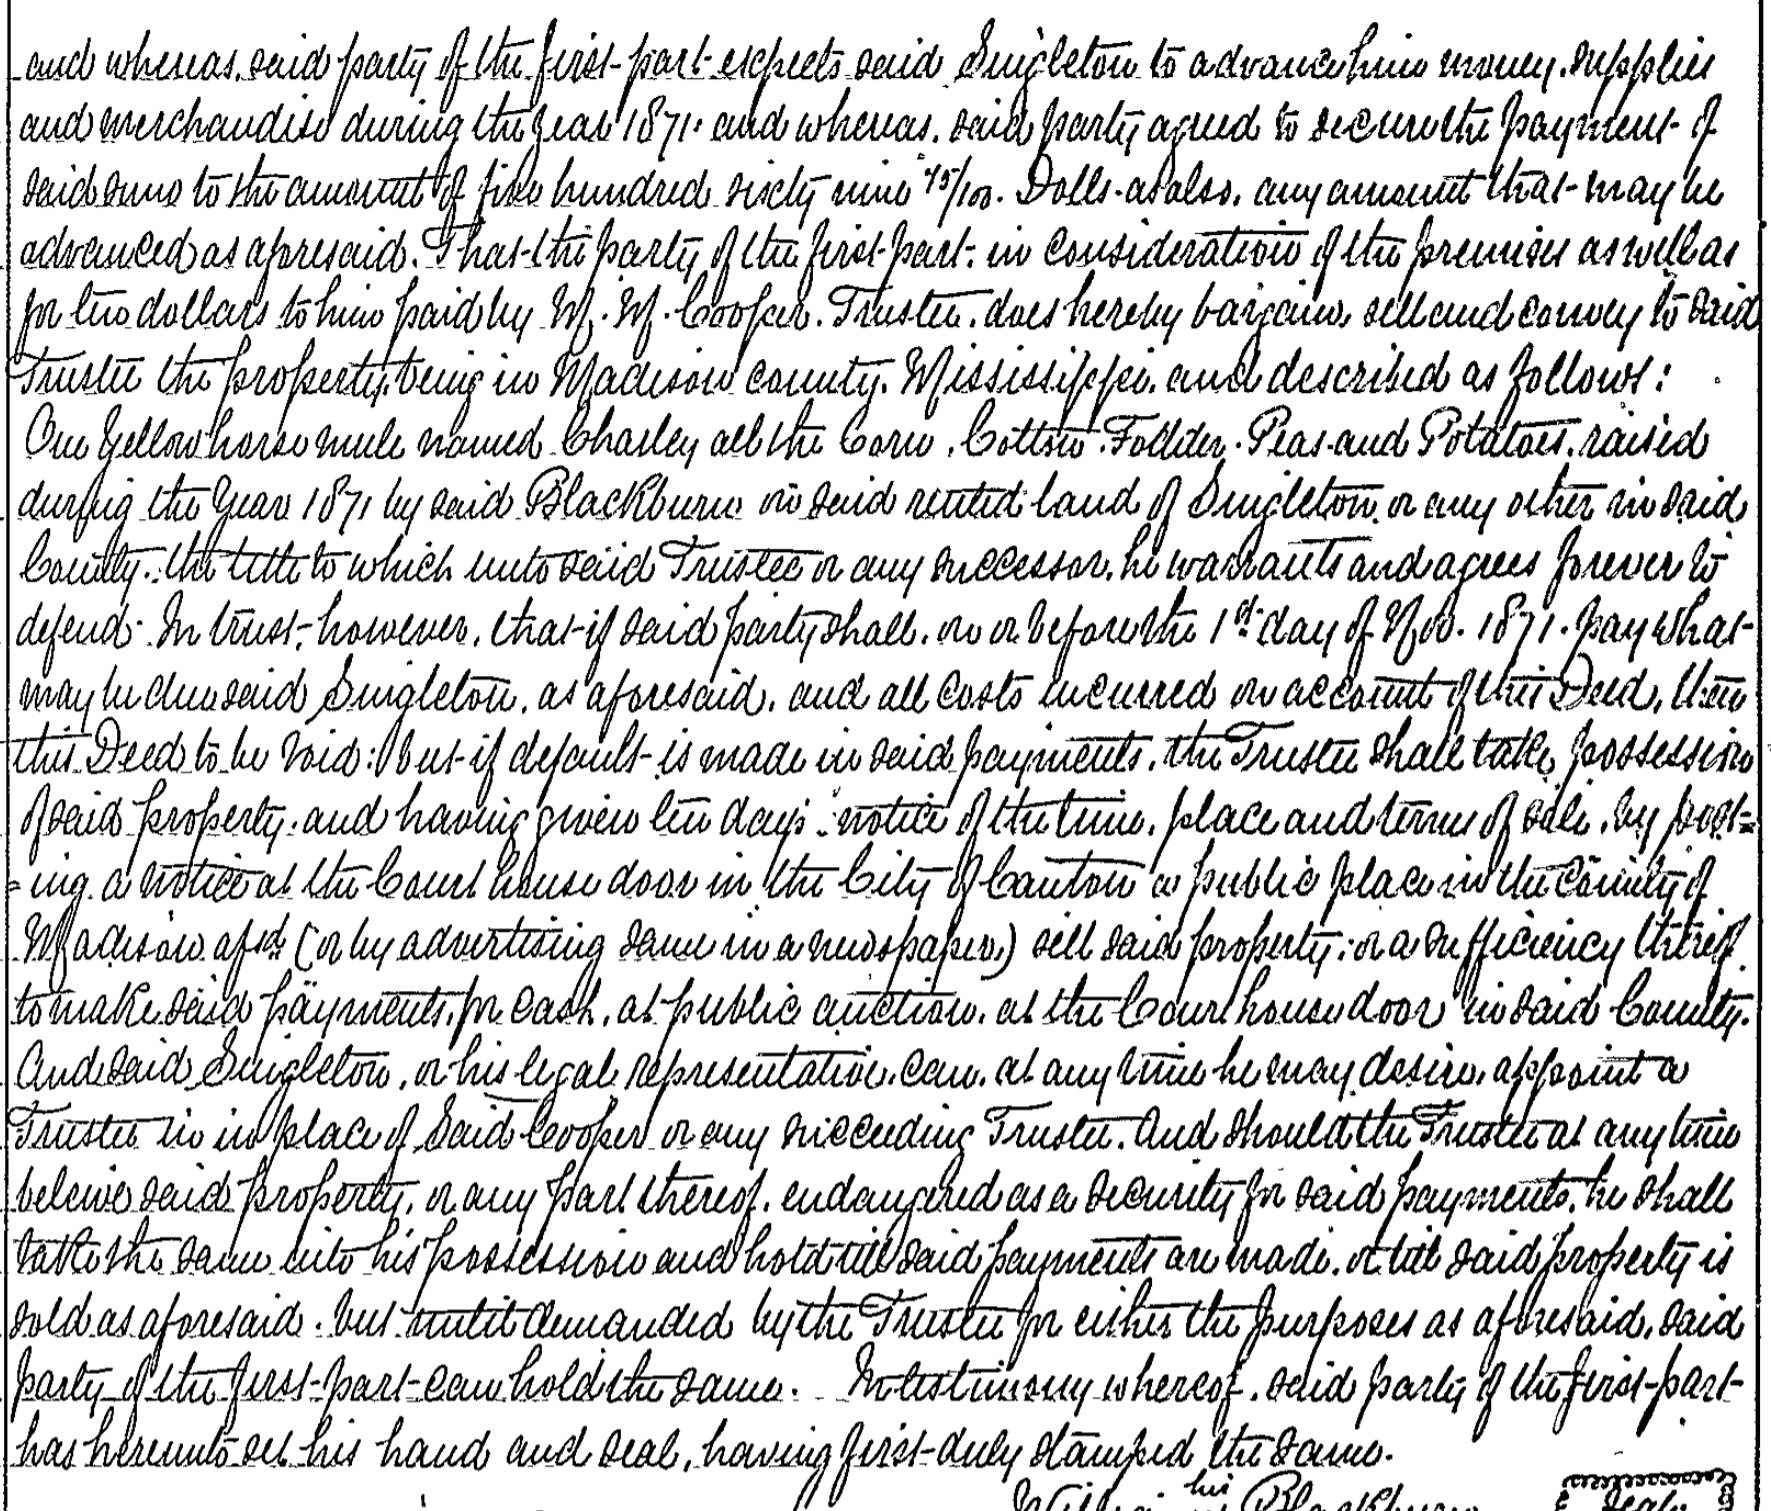 and whereas, said party of the first part expects said Singleton to advance him money, supplies
and merchandise during the year 1871. and whereas, said party agreed to secure the payment of
said sums to the amount of five hundred sixty nine 45/100. Dolls. as also, any amount that may be
advanced as aforesaid. That the party of the first part, in consideration of the premises as well as
for ten dollars to him paid by W. W. Cooper. Trustee, does hereby bargain, sell and convey to said
Trustee the property, being in Madison county, Mississippi, and described as follows:
One Yellow horse mule named Charley all the Corn, Cotton, Fodder, Peas and Potatoes, raised
during the Year 1871 by said Blackburn on said rented land of Singleton, or any other in said
County. the title to which unto said Trustee or any successor, he warrants and agrees forever to
defend. In trust, however, that if said party shall, on or before the 1st day of Nov. 1871. pay what
may be due said Singleton, as aforesaid, and all costs incurred on account of this Deed, then
this Deed to be Void: but if default is made in said payments, the Trustee shall take possession
of said property, and having given ten days' notice of the time, place and terms of sale, by post=
=ing a notice at the Court house door in the City of Canton a public place in the County of
Madison afsd (or by advertising same in a newspaper) sell said property, or a sufficiency thereof
to make said payments, for cash, at public auction, at the Court house door in said County.
And said Singleton, or his legal representative, can, at any time he may desire, appoint a
Trustee in in place of Said Cooper or any succeeding Trustee. And should the Trustee at any time
beleive said property, or any part thereof, endangered as a security for said payments, he shall
take the same into his possession and hold till said payments are made, or till said property is
sold as aforesaid. but until demanded by the Trustee for either the purposes as aforesaid, said
party of the first part can hold the same. In testimony whereof, said party of the first part
has hereunto set his hand and seal, having first duly stamped the same.
his
Blackburn